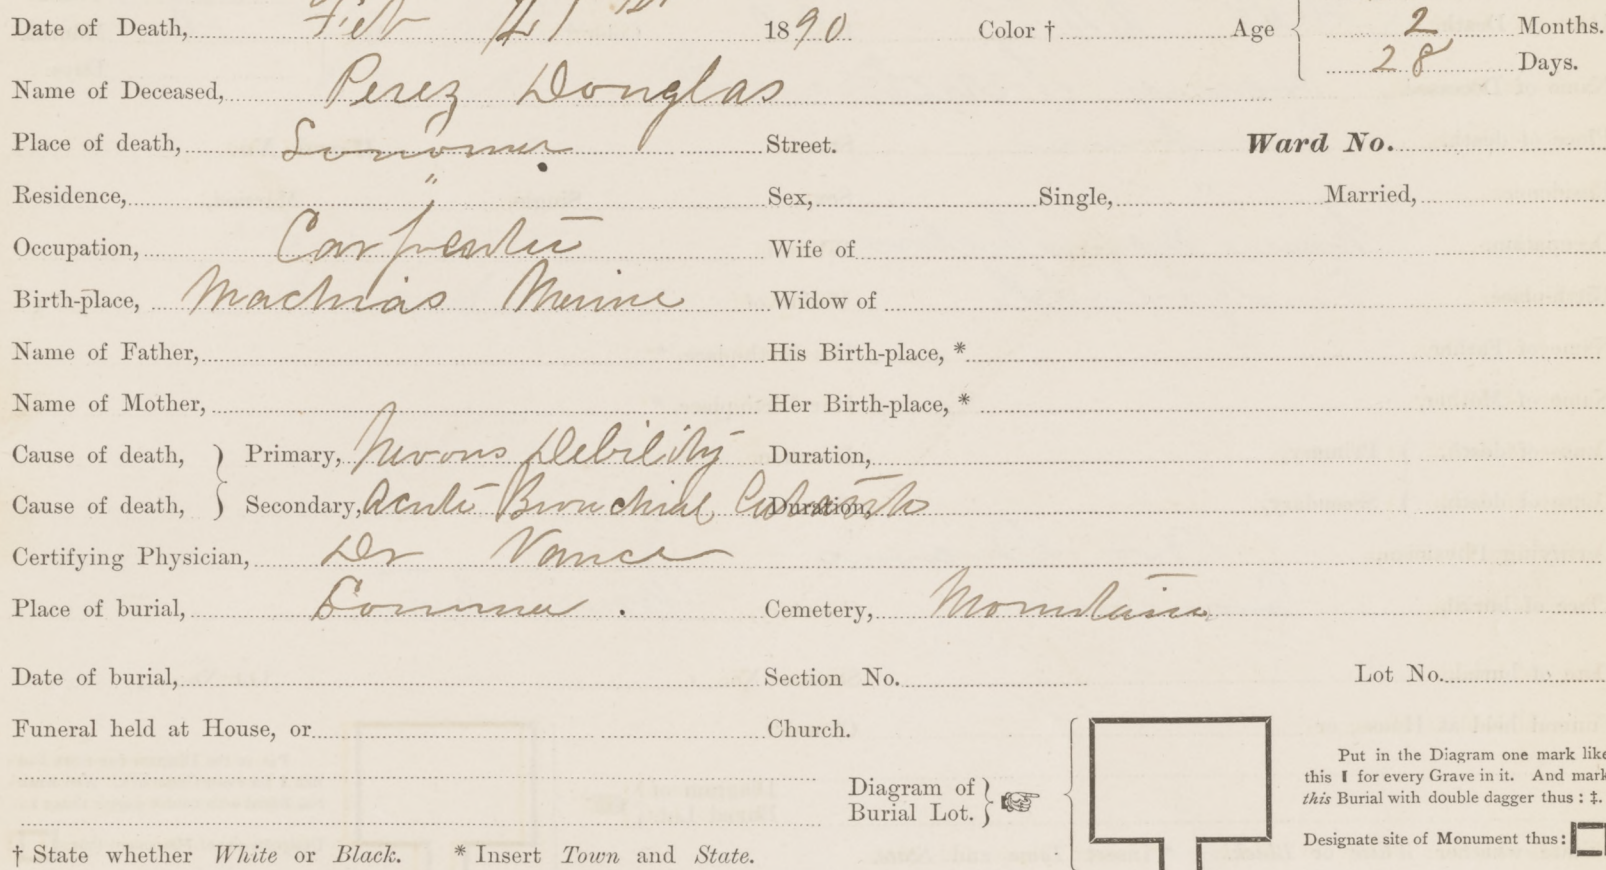 Date of Death, Feb 1890 Color † Age 2 Months.
28 Days.
Name of Deceased, Perez Douglas
Place of death, Sonoma Street. Ward No.
Residence, " Sex, Single, Married,
Occupation, Carpenter Wife of
Birth-place, Machias Maine Widow of
Name of Father, His Birth-place, *
Name of Mother, Her Birth-place, *
Cause of death, } Primary, Nervous Debility Duration,
Cause of death, } Secondary, Acute Bronchial Duration,
Certifying Physician, Dr Vance
Place of burial, Sonoma . Cemetery, Mountain
Date of burial, Section No. Lot No.
Funeral held at House, or Church.
Diagram of
Burial Lot.
Put in the Diagram one mark like
this I for every Grave in it. And mark
this Burial with double dagger thus : ‡.
Designate site of Monument thus:
† State whether White or Black. * Insert Town and State.